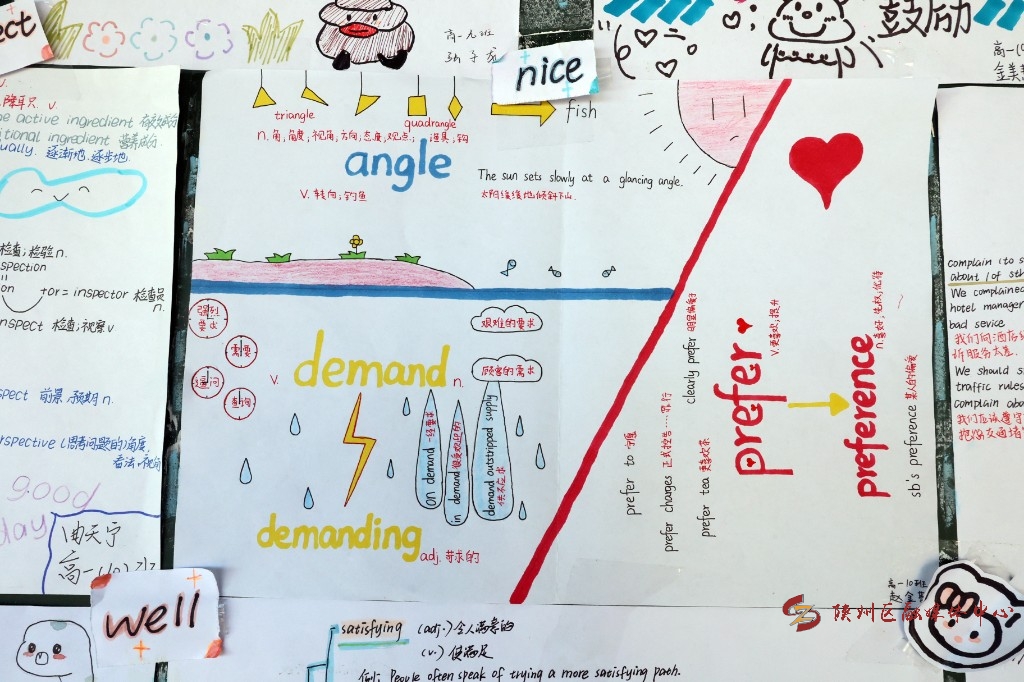 ect
高一九班
nice
鼓励
triangle
quadrangle
fish
n. 角;角度;视角;方向;态度,观点; 道具;钩
angle
v. 转向;钓鱼
The sun sets slowly at a glancing angle.
太阳缓缓地倾斜下山.
强烈
要求
需要
逼问
查询
艰难的要求
顾客的需求
v.
demand
n.
on demand 一经要求
in demand 很受欢迎的
demand outstripped supply
供不应求
demanding
adj. 苛求的
prefer
v. 更喜欢;提升
preference
n. 喜好;先权;优待
prefer to 宁推
prefer changes 正式控告……罪行
prefer tea 更喜欢茶
clearly prefer 明显偏好
sb's preference 某人的偏爱
active ingredient
itional ingredient 营养成分
ually. 逐渐地.逐步地.
检查;检验 n.
spection
on
+or = inspector 检查员
n.
nspect 检查;视察 v
spect 前景.预期 n.
rspective (思考问题的)角度,
看法.视角
good
day
曲天宁
well
complain (to s
about / of sth
We complained
hotel manager
bad sevice
我们向酒店经
诉服务太差.
We should s
traffic rules
complain abo
我们应该遵守
高一10班
陕州区融媒体中心
satisfying (adj.)令人满意的
(v.) 使满足
例: People often speak of trying a more satisfying path.